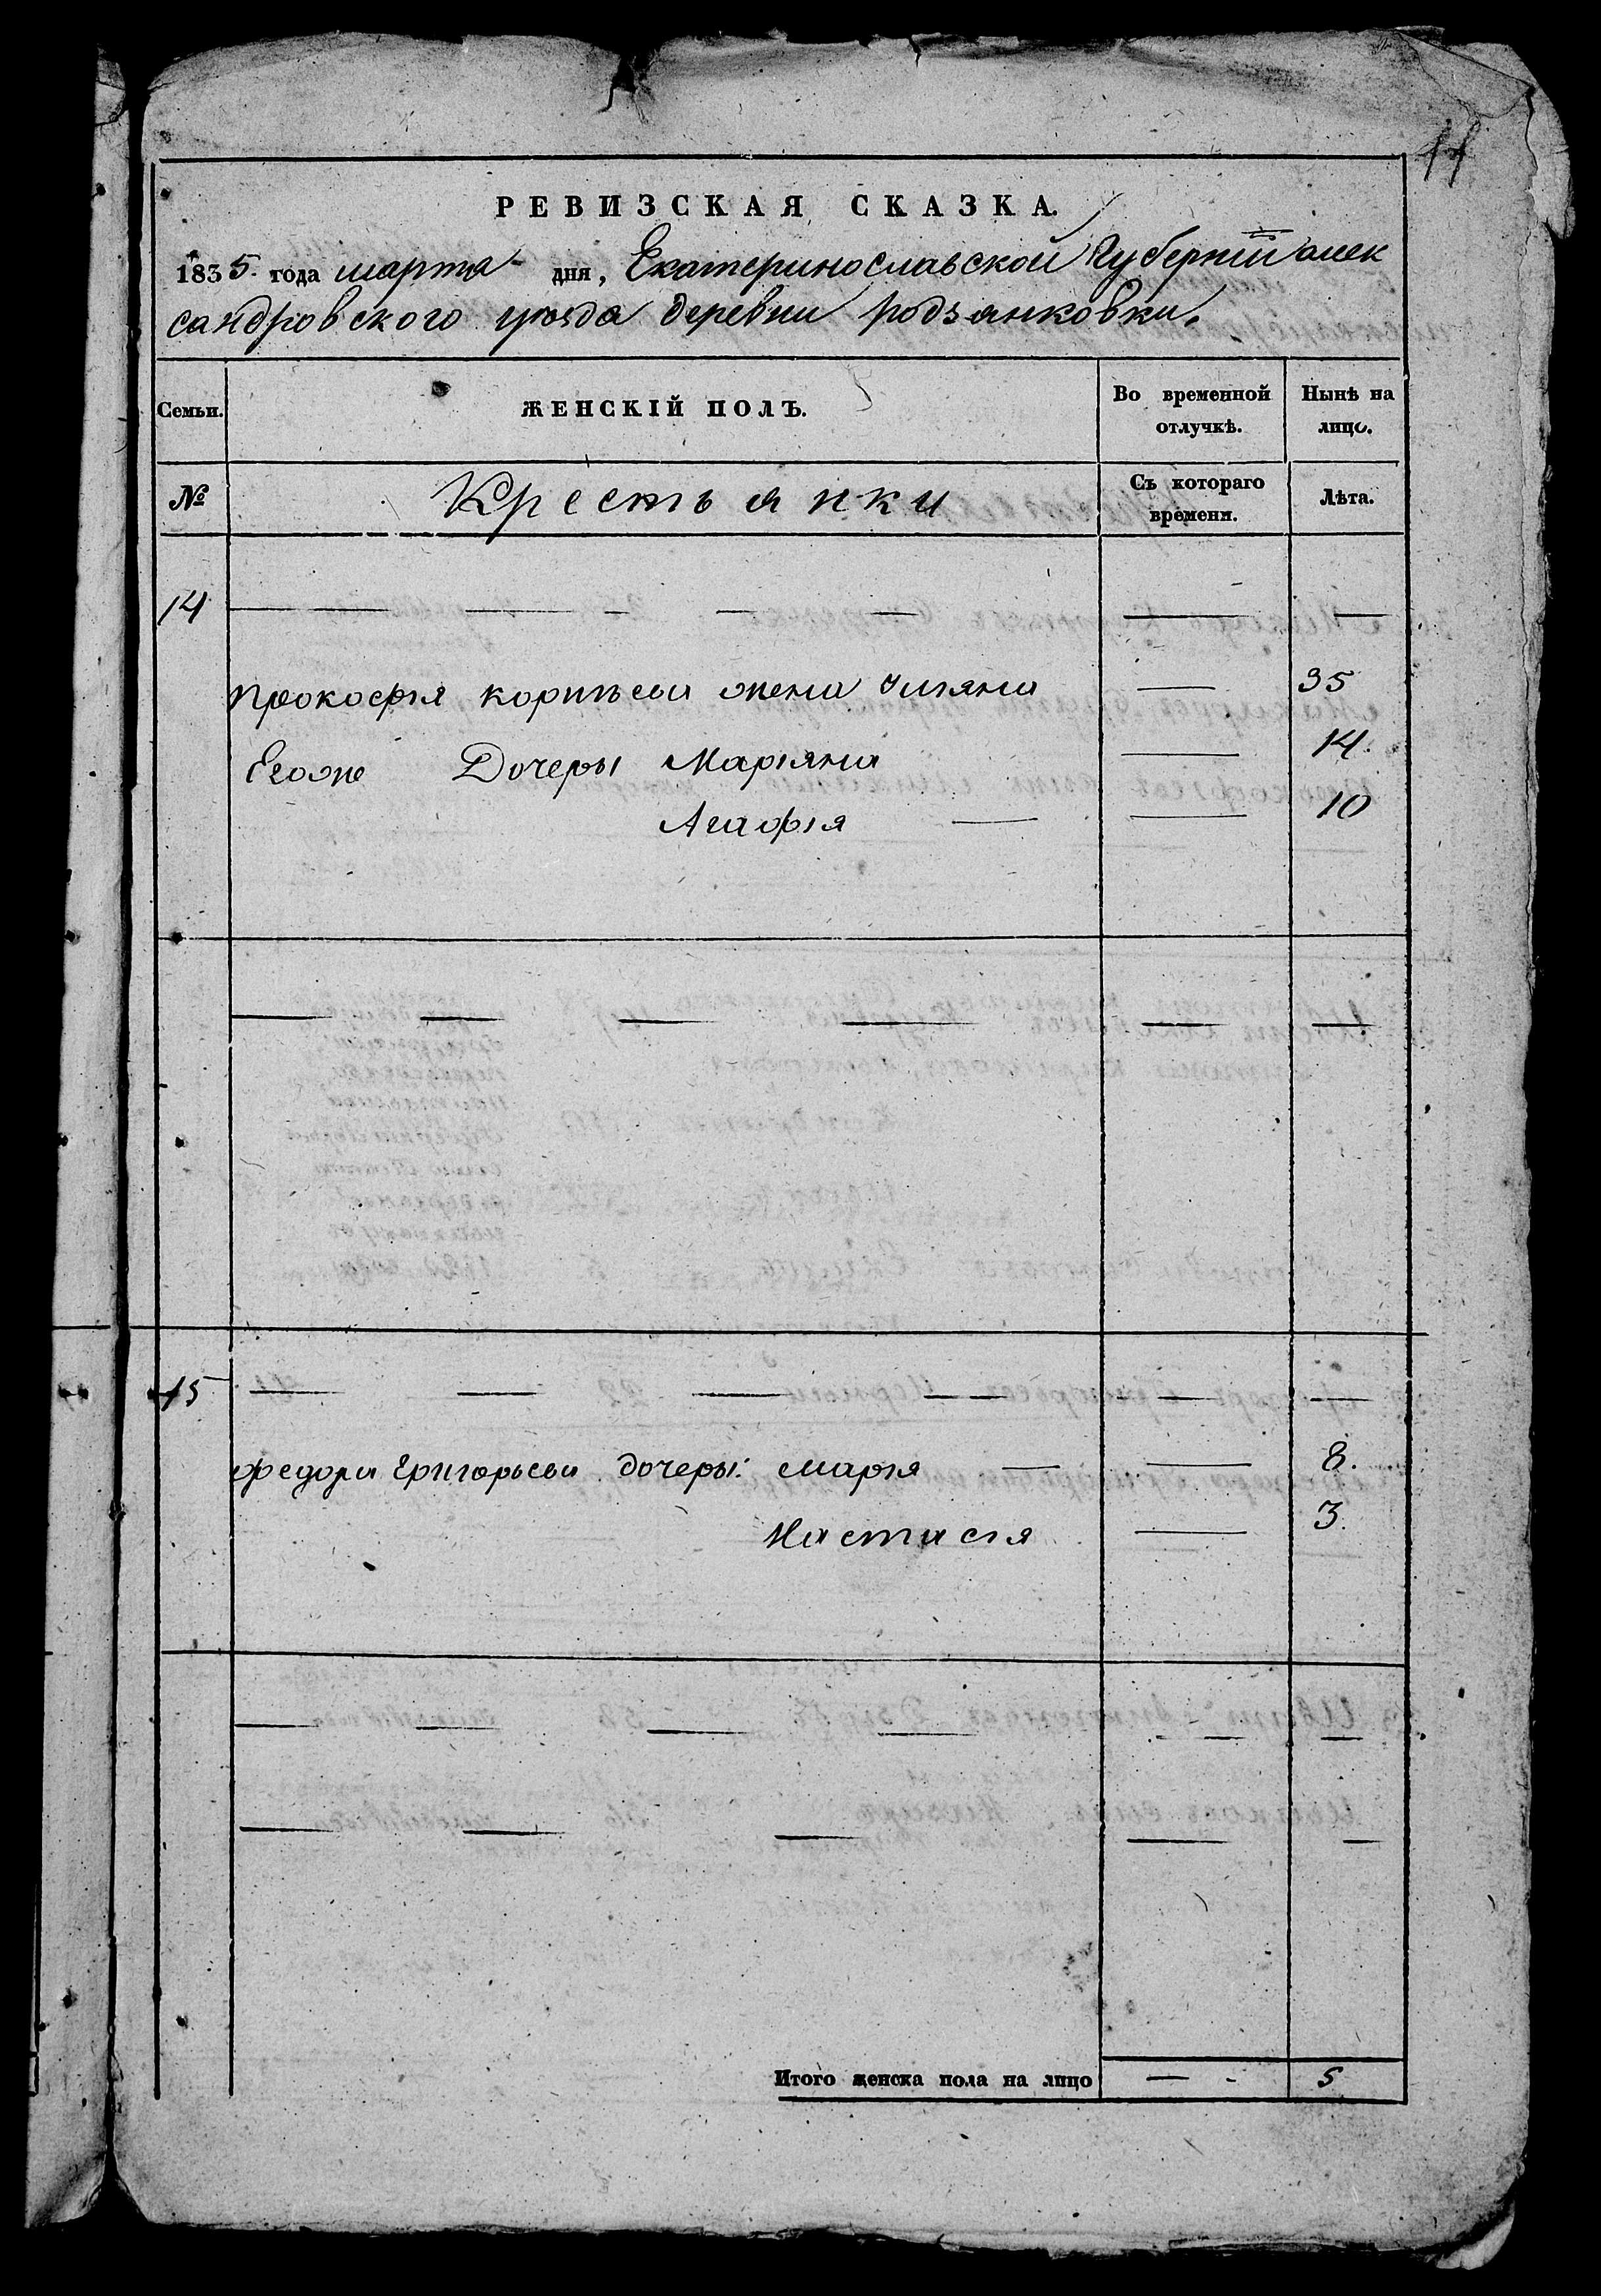 11
РЕВИЗСКАЯ СКАЗКА.
1835. года марта дня, Екатеринославской Губернии алек
сандровского уезда деревни родзянковки.
Семьи. ЖЕНСКІЙ ПОЛЪ. Во временной отлучкѣ. Нынѣ на лицо.
№ Крестьянки Съ котораго времени. Лѣта.
14
Прокофія корнѣева жена Ульяна — 35
Егоже Дочеры Маріяна — 14.
Агафія — — 10
15
Федора Григорьева дочеры: марія — — 8.
Настасія — 3.
Итого женска пола на лицо — - 5